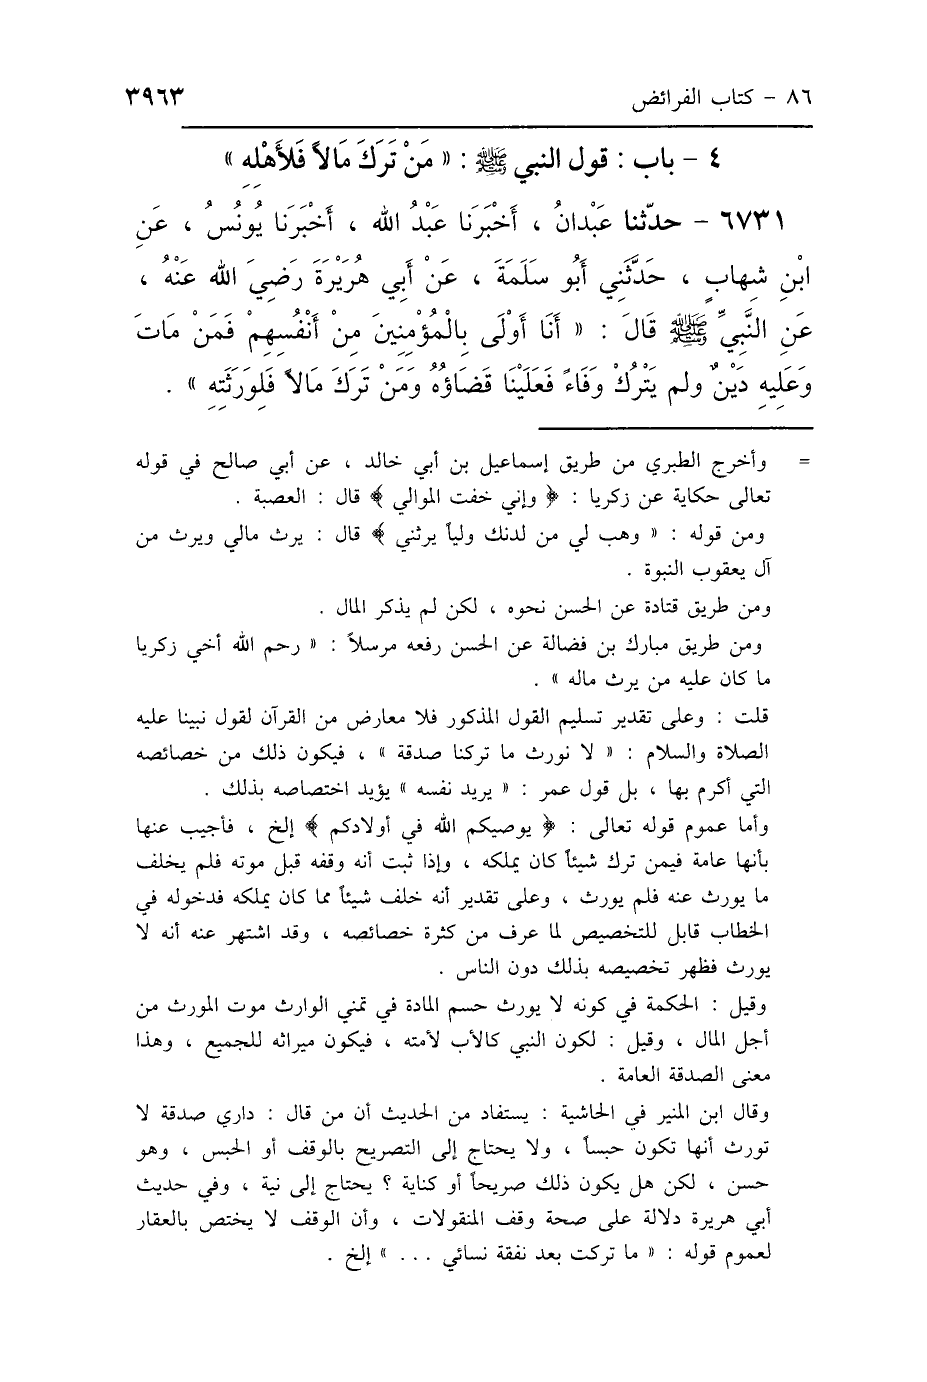 ٨٦ – كتاب الفرائض ٣٩٦٣
٤ – باب : قول النبي ﷺ : « مَنْ تَرَكَ مَالاً فَلأَهْلِهِ »
٦٧٣١ – حدّثنا عَبْدانُ ، أَخْبَرَنَا عَبْدُ الله ، أَخْبَرَنَا يُونُسُ ، عَنِ
ابْنِ شِهابٍ ، حَدَّثَنِي أَبُو سَلَمَةَ ، عَنْ أَبِي هُرَيْرَةَ رَضِيَ الله عَنْهُ ،
عَنِ النَّبِيِّ ﷺ قَالَ : « أَنَا أَوْلَى بِالْمُؤْمِنِينَ مِنْ أَنْفُسِهِمْ فَمَنْ مَاتَ
وَعَلِيهِ دَيْنٌ ولم يَتْرُكْ وَفَاءً فَعَلَيْنَا قَضَاؤُهُ وَمَنْ تَرَكَ مَالاً فَلِوَرَثَتِهِ » .
= وأخرج الطبري من طريق إسماعيل بن أبي خالد ، عن أبي صالح في قوله
تعالى حكاية عن زكريا : ﴿ وإني خفت الموالي ﴾ قال : العصبة .
ومن قوله : « وهب لي من لدنك ولياً يرثني ﴾ قال : يرث مالي ويرث من
آل يعقوب النبوة .
ومن طريق قتادة عن الحسن نحوه ، لكن لم يذكر المال .
ومن طريق مبارك بن فضالة عن الحسن رفعه مرسلاً : « رحم الله أخي زكريا
ما كان عليه من يرث ماله » .
قلت : وعلى تقدير تسليم القول المذكور فلا معارض من القرآن لقول نبينا عليه
الصلاة والسلام : « لا نورث ما تركنا صدقة » ، فيكون ذلك من خصائصه
التي أكرم بها ، بل قول عمر : « يريد نفسه » يؤيد اختصاصه بذلك .
وأما عموم قوله تعالى : ﴿ يوصيكم الله في أولادكم ﴾ إلخ ، فأجيب عنها
بأنها عامة فيمن ترك شيئاً كان يملكه ، وإذا ثبت أنه وقفه قبل موته فلم يخلف
ما يورث عنه فلم يورث ، وعلى تقدير أنه خلف شيئاً مما كان يملكه فدخوله في
الخطاب قابل للتخصيص لما عرف من كثرة خصائصه ، وقد اشتهر عنه أنه لا
يورث فظهر تخصيصه بذلك دون الناس .
وقيل : الحكمة في كونه لا يورث حسم المادة في تمني الوارث موت المورث من
أجل المال ، وقيل : لكون النبي كالأب لأمته ، فيكون ميراثه للجميع ، وهذا
معنى الصدقة العامة .
وقال ابن المنير في الحاشية : يستفاد من الحديث أن من قال : داري صدقة لا
تورث أنها تكون حبساً ، ولا يحتاج إلى التصريح بالوقف أو الحبس ، وهو
حسن ، لكن هل يكون ذلك صريحاً أو كناية ؟ يحتاج إلى نية ، وفي حديث
أبي هريرة دلالة على صحة وقف المنقولات ، وأن الوقف لا يختص بالعقار
لعموم قوله : « ما تركت بعد نفقة نسائي ... » إلخ .